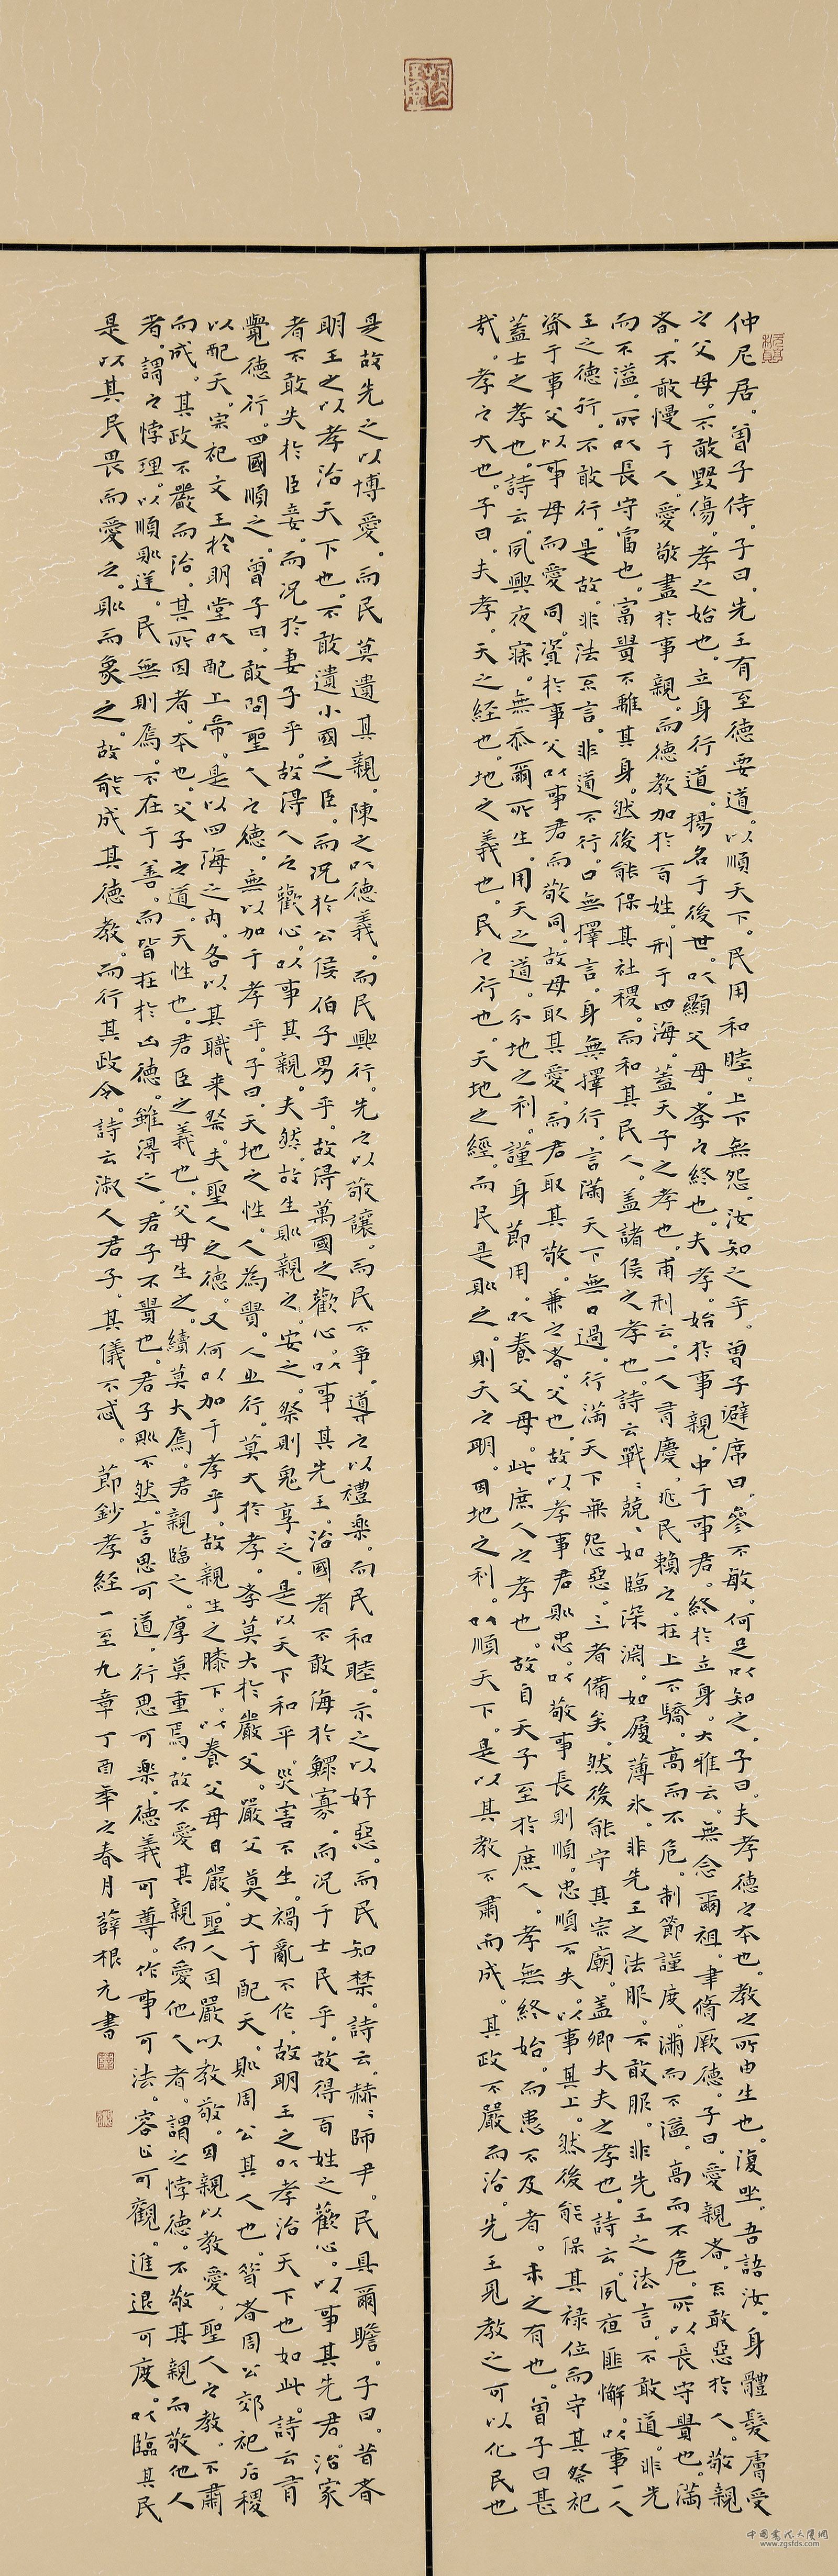 仲尼居。曾子侍。子曰。先王有至德要道。以順天下。民用和睦。上下無怨。汝知之乎。曾子避席曰。參不敏。何足以知之。子曰。夫孝德之本也。教之所由生也。復坐。吾語汝。身體髮膚受
之父母。不敢毀傷。孝之始也。立身行道。揚名于後世。以顯父母。孝之終也。夫孝。始於事親。中于事君。終於立身。大雅云。無念爾祖。聿脩厥德。子曰。愛親者。不敢惡於人。敬親
者。不敢慢于人。愛敬盡於事親。而德教加於百姓。刑于四海。蓋天子之孝也。甫刑云。一人有慶。兆民賴之。在上不驕。高而不危。制節謹度。滿而不溢。高而不危。所以長守貴也。滿
而不溢。所以長守富也。富貴不離其身。然後能保其社稷。而和其民人。蓋諸侯之孝也。詩云戰戰兢兢。如臨深淵。如履薄冰。非先王之法服。不敢服。非先王之法言。不敢道。非先
王之德行。不敢行。是故。非法不言。非道不行。口無擇言。身無擇行。言滿天下無口過。行滿天下無怨惡。三者備矣。然後能守其宗廟。蓋卿大夫之孝也。詩云。夙夜匪懈。以事一人
資于事父以事母而愛同。資於事父以事君而敬同。故母取其愛。而君取其敬。兼之者。父也。故以孝事君則忠。以敬事長則順。忠順不失。以事其上。然後能保其祿位而守其祭祀
蓋士之孝也。詩云。夙興夜寐。無忝爾所生。用天之道。分地之利。謹身節用。以養父母。此庶人之孝也。故自天子至於庶人。孝無終始。而患不及者。未之有也。曾子曰甚
哉。孝之大也。子曰。夫孝。天之經也。地之義也。民之行也。天地之經。而民是則之。則天之明。因地之利。以順天下。是以其教不肅而成。其政不嚴而治。先王見教之可以化民也
是故先之以博愛。而民莫遺其親。陳之以德義。而民興行。先之以敬讓。而民不爭。導之以禮樂。而民和睦。示之以好惡。而民知禁。詩云。赫赫師尹。民具爾瞻。子曰。昔者
明王之以孝治天下也。不敢遺小國之臣。而況於公侯伯子男乎。故得萬國之歡心。以事其先王。治國者不敢侮於鰥寡。而況于士民乎。故得百姓之歡心。以事其先君。治家
者不敢失於臣妾。而況於妻子乎。故得人之歡心。以事其親。夫然。故生則親之。安之。祭則鬼享之。是以天下和平。災害不生。禍亂不作。故明王之以孝治天下也如此。詩云有
覺德行。四國順之。曾子曰。敢問聖人之德。無以加于孝乎。子曰。天地之性。人為貴。人之行。莫大於孝。孝莫大於嚴父。嚴父莫大于配天。則周公其人也。昔者周公郊祀后稷
以配天。宗祀文王於明堂以配上帝。是以四海之內。各以其職來祭。夫聖人之德。又何以加于孝乎。故親生之膝下。以養父母日嚴。聖人因嚴以教敬。因親以教愛。聖人之教。不肅
而成。其政不嚴而治。其所因者。本也。父子之道。天性也。君臣之義也。父母生之。續莫大焉。君親臨之。厚莫重焉。故不愛其親而愛他人者。謂之悖德。不敬其親而敬他人
者。謂之悖理。以順則逆。民無則焉。不在于善。而皆在於凶德。雖得之。君子不貴也。君子則不然。言思可道。行思可樂。德義可尊。作事可法。容止可觀。進退可度。以臨其民
是以其民畏而愛之。則而象之。故能成其德教。而行其政令。詩云淑人君子。其儀不忒。 節鈔孝經一至九章丁酉年之春月薛根元書
中国书法大厦网
www.zgsfds.com